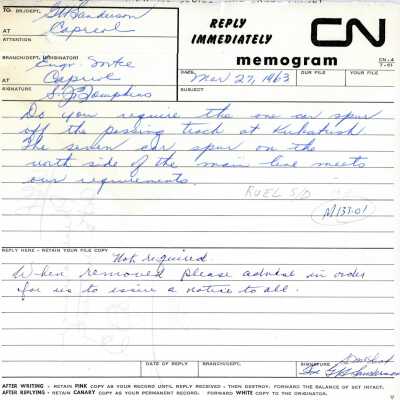 TO: BR./DEPT. G W Sanderson
REPLY IMMEDIATELY
CN
memogram
CN-4
7-61
AT Capreol
ATTENTION
BRANCH/DEPT. (ORIGINATOR) Engr. Mtce
AT Capreol
DATE Mar 27, 1963
OUR FILE
YOUR FILE
SIGNATURE S. J. Tompkins
SUBJECT
Do you require the one car spur
off the passing track at Kukatush
The seven car spur on the
north side of the main line meets
our requirements.
RUEL S/D
M133.01
REPLY HERE - RETAIN YOUR FILE COPY
Not required.
When removed please advise in order
for us to issue a notice to all.
DATE OF REPLY
BRANCH/DEPT.
SIGNATURE
for G W Sanderson
AFTER WRITING - RETAIN PINK COPY AS YOUR RECORD UNTIL REPLY RECEIVED - THEN DESTROY. FORWARD THE BALANCE OF SET INTACT.
AFTER REPLYING - RETAIN CANARY COPY AS PERMANENT RECORD OF YOUR REPLY. FORWARD WHITE COPY TO THE ORIGINATOR.